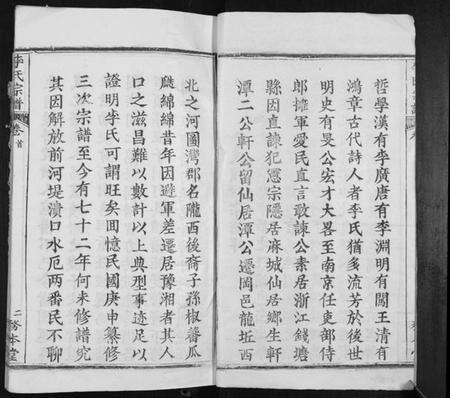 哲學漢有李廣唐有李淵明有闖王清有
鴻章古代詩人者李氏猶多流芳於後世
明史有旻公宏才大畧至南京任吏部侍
郎擁軍愛民直言敢諫公素居浙江錢塘
縣因直諫犯憲宗隱居麻城仙居鄉生軒
潭二公軒公留仙居潭公遷岡邑龍坵西
李氏宗譜
卷首
二 務本堂
北之河圖灣郡名隴西後裔子孫椒蕃瓜
瓞綿綿昔年因避軍差遷居豫湘者其人
口之滋昌難以數計以上典型事迹足以
證明李氏可謂旺矣囬憶民國庚申纂修
三次宗譜至今有七十二年何未修譜究
其因解放前河堤潰口水厄兩番民不聊